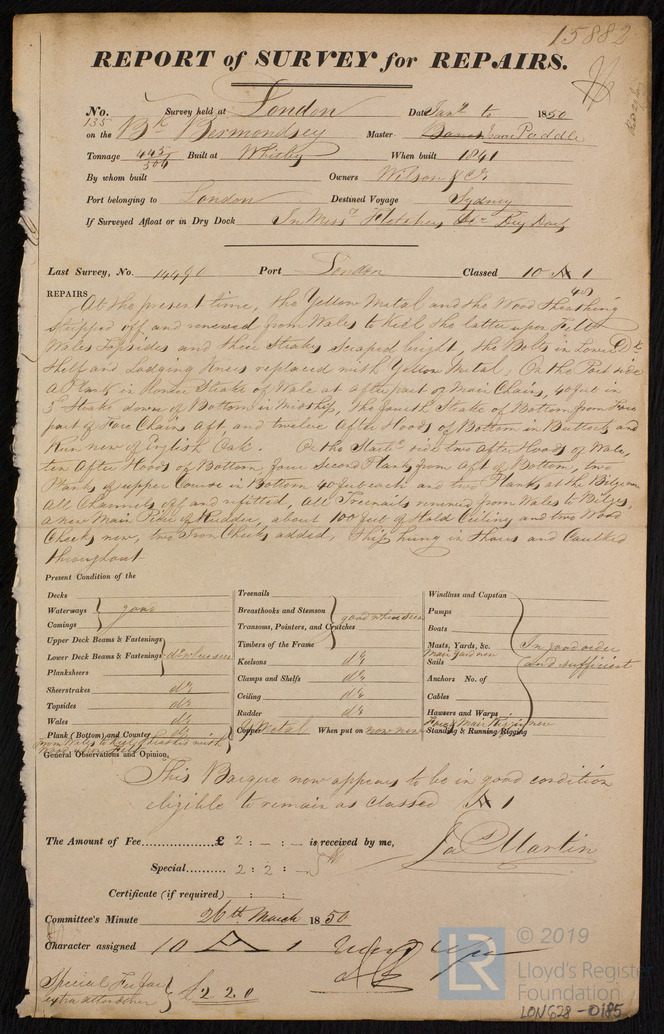 15882
REPORT of SURVEY for REPAIRS.
No. 135 Survey held at London Date Jany to 1850
on the Bk Bermondsey Master Isaac Paddle
Tonnage 445/504 Built at Whitby When built 1841
By whom built Owners Wilson & Co
Port belonging to London Destined Voyage Sydney
If Surveyed Afloat or in Dry Dock In Messrs Fletchers Dry Dock
Last Survey, No. 14490 Port London Classed 10 A 1
REPAIRS
At the present time, the Yellow Metal and the Wood Sheathing
stripped off and renewed from Wales to Keel the latter upon Felt
Wales Topsides and Sheer Strakes scraped bright, the Bolts in Lower Dk
Shelf and Lodging Knees replaced with Yellow Metal, On the Port side
a Plank in Strake of Wale at after part of Main Chains, 40 feet in
3d Strake down of Bottom in Midship, the fourth Strake of Bottom from Fore
part of Fore Chains Aft, and twelve After Hoods of Bottom in Buttock and
Run new of English Oak. On the Starbd side two After Hoods of Wale,
ten After Hoods of Bottom, four Second Planks from Aft of Bottom, two
Planks of upper Course in Bottom 40 feet each and two Planks at the Bilge
All Channels off and refitted, All Treenails renewed from Wales to Bilges,
a new Main Piece of Rudder, about 100 feet of Hold Ceiling and two Wood
Cheeks new, two Iron Cheeks added, Ship hung in Shores and Caulked
throughout
Present Condition of the
Decks
Waterways good
Comings
Upper Deck Beams & Fastenings
Lower Deck Beams & Fastenings do where seen
Planksheers
Sheerstrakes do
Topsides do
Wales do
Plank (Bottom) and Counter do
from Wales to Keel
Treenails
Breasthooks and Stemson good where seen
Transoms, Pointers, and Crutches
Timbers of the Frame
Keelsons do
Clamps and Shelfs do
Ceiling do
Rudder do
Copper Y Metal When put on now new
Windlass and Capstan
Pumps
Boats
Masts, Yards, &c. In good order
Main Yard new
Sails and sufficient
Anchors No. of
Cables
Hawsers and Warps
Fore & Main Rigging new
Standing & Running Rigging
General Observations and Opinion,
This Barque now appears to be in good condition
eligible to remain as classed A 1
The Amount of Fee £ 2 : - : - is received by me,
Special 2 : 2 : - Jas Martin
Certificate (if required) : :
Committee's Minute 26th March 1850
Character assigned 10 A 1
Special Fee for
extra attendance } £2.2.0
© 2019
LR
Lloyd's Register
Foundation
LON628-0185